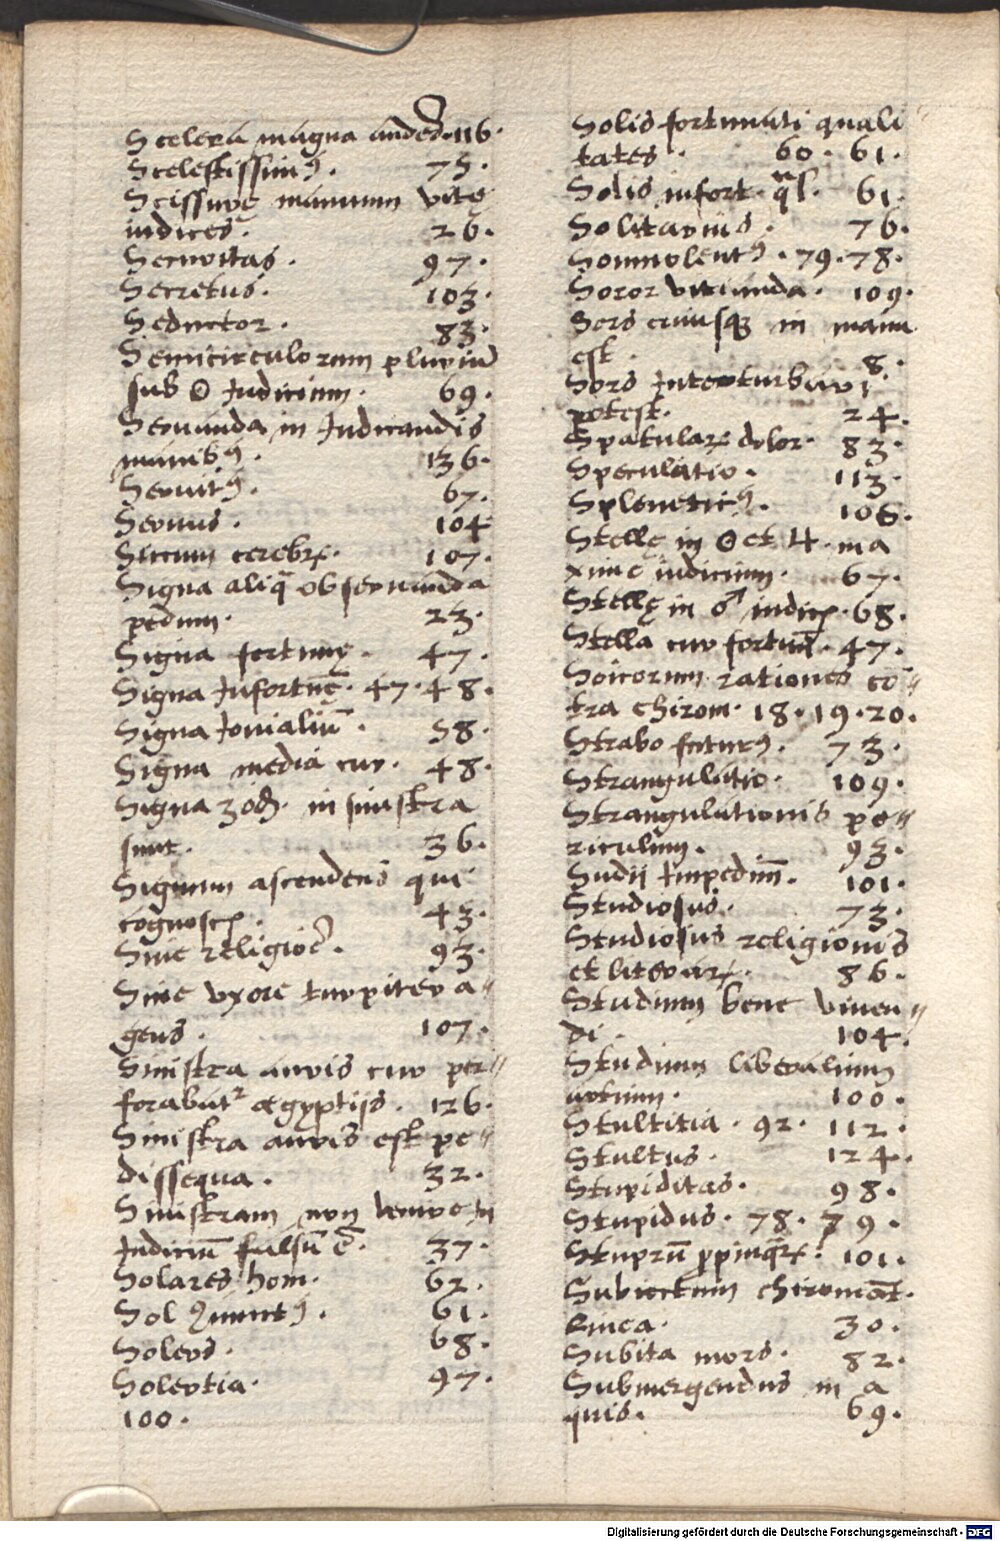 Scelera magna anded. 116.
Scelestissimꝰ. 75.
Scissurę manuum vitę
iudices. 26.
Securitas. 97.
Secretus. 103.
Seductor. 83.
Semicirculorum pluriū
sub ☉ Iudicium. 69.
Seruanda in Iudicandis
manibꝰ. 136.
Seruitꝰ. 67.
Seruus. 104
Siccum cerebrꝫ. 107.
Signa aliq̄ obseruanda
pedum. 23.
Signa fortunę. 47.
Signa Infortūę. 47. 48.
Signa Iouialiū. 58.
Signa media cur. 48.
Signa zod. in sinistra
sunt. 36.
Signum ascendens qui
cognoscꝫ. 43.
Sine religioē. 93.
Sine vxore turpiter a〃
gens. 107.
Sinistra auris cur per〃
forabat̾ ægyptijs. 126.
Sinistra auris est pe〃
dissequa. 32.
Sinistram non
Iudiciū falsū ē. 37.
Solares hom. 62.
Sol ꝯiunctꝰ. 61.
Solers. 68.
Solertia. 97.
100.
Solis fortunati quali
tates. 60. 61.
Solis infort. q̄l. 61.
Solitarius. 76.
Somnolentꝰ. 79. 78.
Soror vitianda. 109.
Sors cuiusqꝫ in manu
est. 8.
Sors Interturbari
potest. 24.
Spatularꝫ dolor. 83.
Speculatio. 113.
Spleneticꝰ. 106.
Stellę in ☉ et ♃. ma
xime iudicium. 67.
Stellę in ♂ iudicꝫ. 68.
Stella cur fortun̄. 47.
Stoicorum rationes cō〃
tra chirom. 18. 19. 20.
Strabo futurꝰ. 73.
Strangulatio. 109.
Strangulationis pe〃
riculum. 93.
Studij Impedim̄. 101.
Studiosus. 73.
Studiosus religionis
et literarꝫ. 86.
Studium bene viuen〃
di. 104.
Studium liberalium
artium. 100.
Stultitia. 92. 112.
Stultus. 124.
Stupiditas. 98.
Stupidus. 78. 79.
Stuprū ꝓpinq̄rꝫ. 101.
Subiectum chiromāt.
linea. 30.
Subita mors. 82.
Submergendus in a
quis. 69.
Digitalisierung gefördert durch die Deutsche Forschungsgemeinschaft - DFG